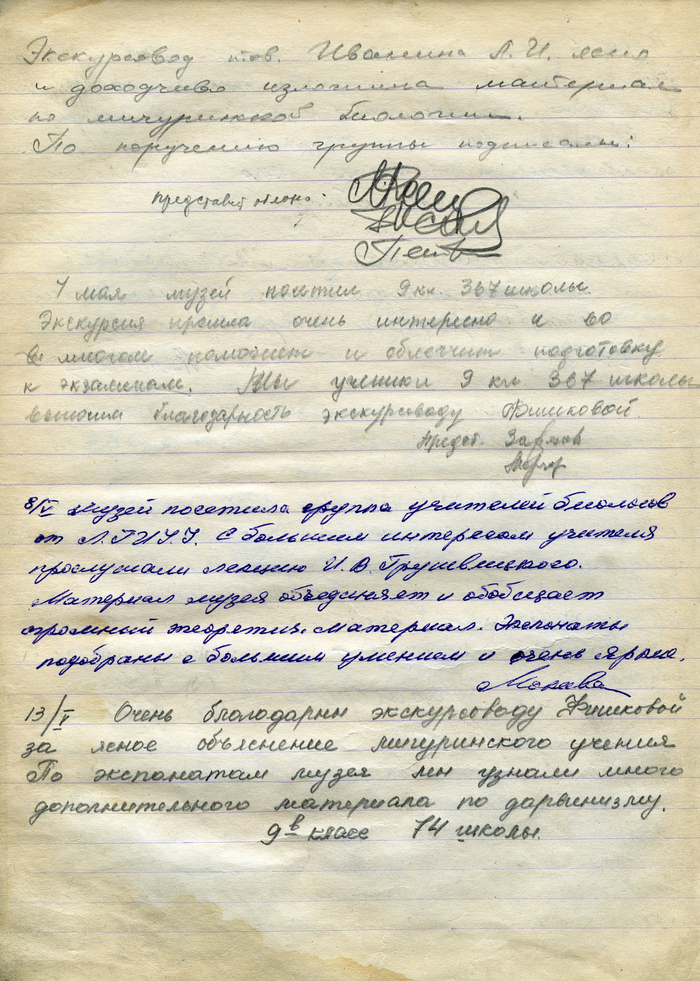 Экскурсовод тов. Иванина Л. И. ясно
и доходчиво изложила материал
по мичуринской биологии.
По поручению группы подписали:
представит облоно:
7 мая музей посетил 9 кл. 367 школы.
Экскурсия прошла очень интересно и во
многом поможет и облегчит подготовку
к экзаменам. Мы ученики 9 кл 367 школы
выносим благодарность экскурсоводу Фишковой.
Предст.
8/V Музей посетила группа учителей биологов
от Л.Г.И.У.У. С большим интересом учителя
прослушали лекцию И. В. Грушвицкого.
Материал музея объединяет и обобщает
огромный теоретич. материал. Экспонаты
подобраны с большим умением и очень ярко.
13/V Очень благодарны экскурсоводу Фишковой
за ясное объяснение мичуринского учения
По экспонатам музея мы узнали много
дополнительного материала по дарвинизму.
9в класс 74 школы.